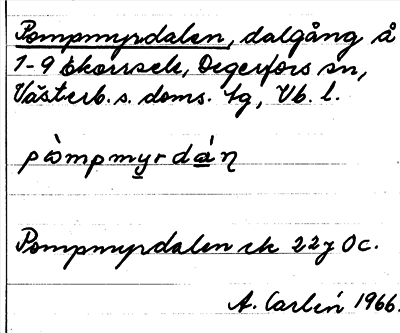 Pompmyrdalen, dalgång å
1-9 Ekorrsele, Degerfors sn,
Västerb. s. doms. tg, Vb. l.
pòmpmyrdáƞ
Pompmyrdalen ek 22j 0c.
A. Carlén 1966.